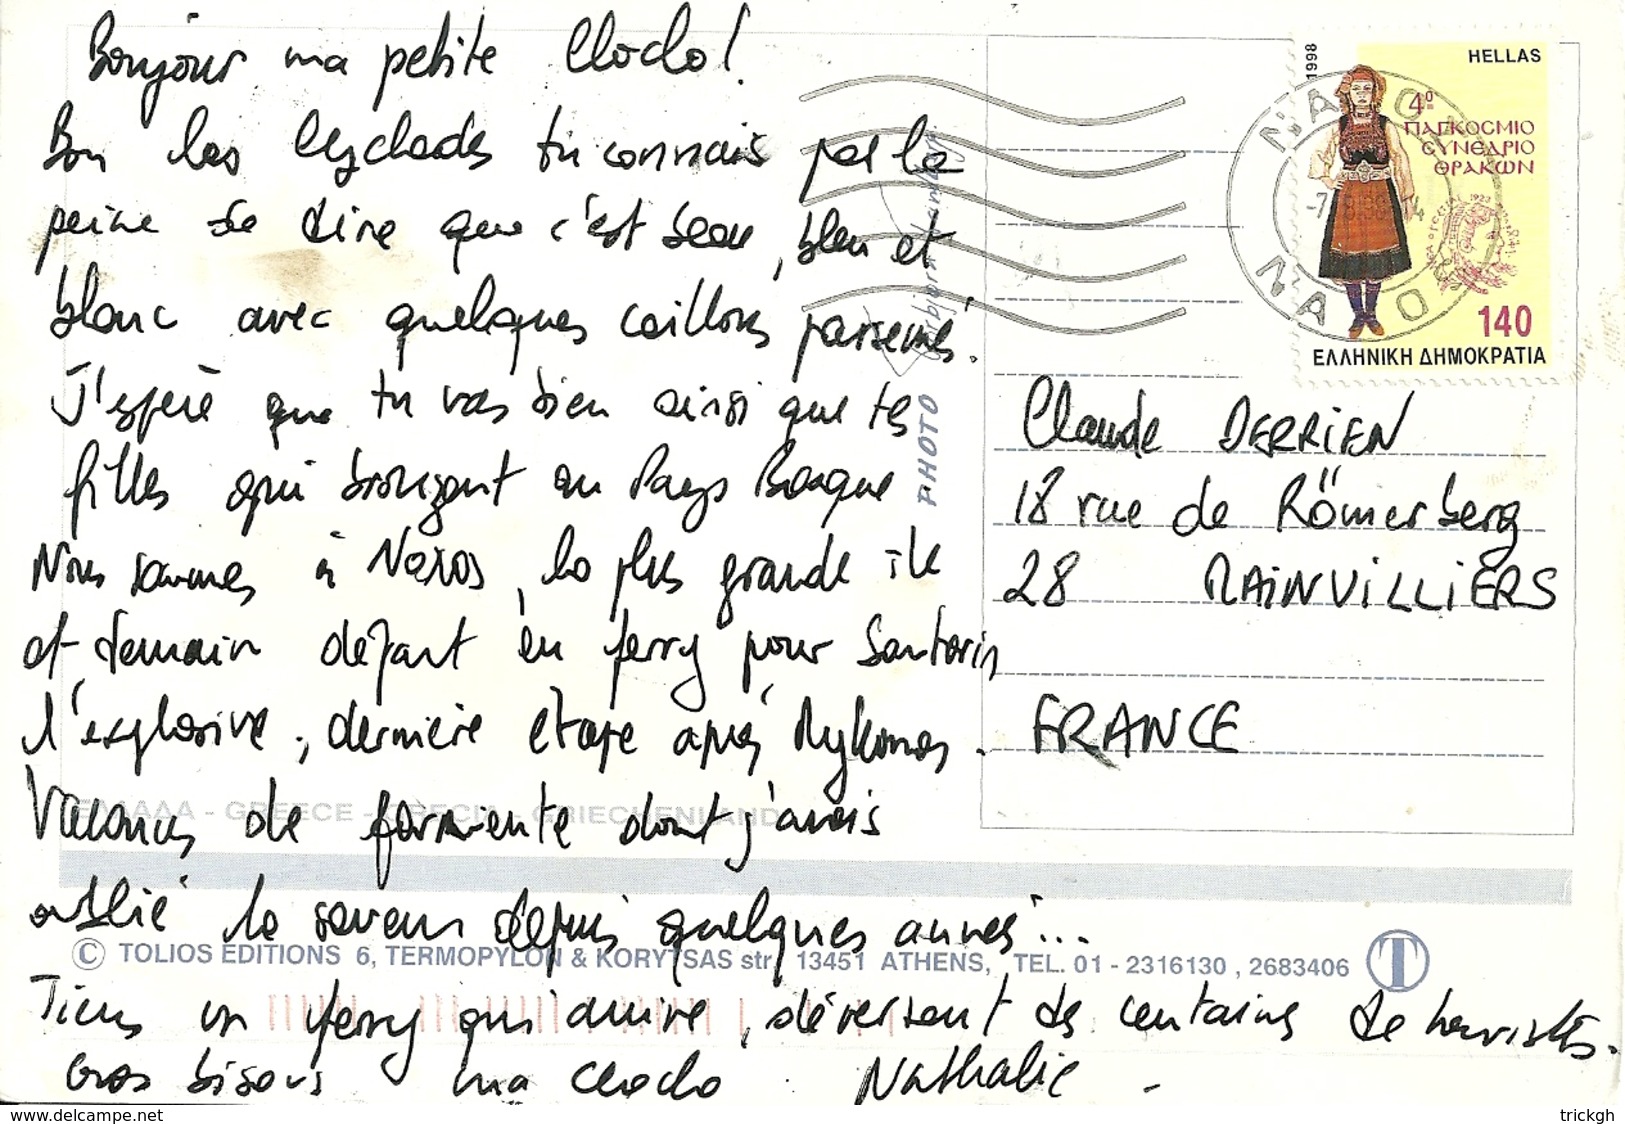 Bonjour ma petite Cloclo !
Bon les Cyclades tu connais pas la
peine de dire que c'est beau, bleu et
blanc avec quelques cailloux parsemés.
J'espère que tu vas bien ainsi que tes
filles qui bronzent au Pays Basque
Nous sommes à Naxos, la plus grande île
et demain départ en ferry pour Santorin
l'explosive, dernière étape après Mykonos.
Vacances de farniente dont j'avais
oublié la saveur depuis quelques années...
Tiens un ferry qui arrive, déversant des centaines de touristes.
Gros bisous ma Cloclo. Nathalie -
1998
HELLAS
4º
ΠΑΓΚΟСΜΙΟ
СΥΝΕΔΡΙΟ
ΘΡΑΚΩΝ
140
ΕΛΛΗΝΙΚΗ ΔΗΜΟΚΡΑΤΙΑ
Claude DERRIEN
18 rue de Römerberg
28 MAINVILLIERS
FRANCE
PHOTO
ΕΛΛΑΔΑ - GREECE - GRECIA - GRIECHENLAND
© TOLIOS EDITIONS 6, TERMOPYLON & KORYTSAS str. 13451 ATHENS, TEL. 01 - 2316130 , 2683406
T
www.delcampe.net
trickgh